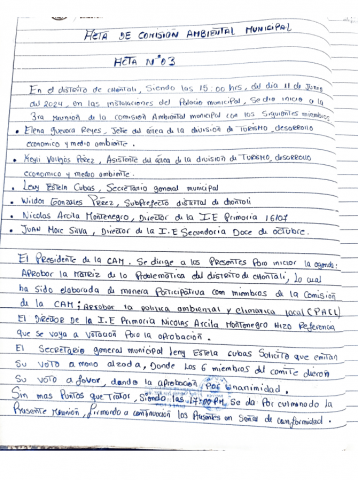 ACTA DE COMISION AMBIENTAL MUNICIPAL
ACTA N° 03
En el distrito de chontali, Siendo las 15:00 hrs, del día 11 de Junio
del 2024, en las instalaciones del Palacio municipal, Se dio inicio a la
3ra reunión de la comisión Ambiental municipal con los Siguientes miembros
• Elena Guevara Reyes, Jefe del área de la división de TURISMO, desarrollo
economico y medio ambiente.
• Vallejos Pérez, Asistente del área de la división de TURISMO, desarrollo
economico y medio ambiente.
• Leny Estela Cubas, Secretaria general municipal
• Wilder Gonzales Pérez, Subprefecto distrital de chontali
• Nicolas Arcila Montenegro, Director de la I.E Primaria 16107
• Juan Moic Sava, Director de la I.E Secundaria Doce de octubre.
El Presidente de la CAM. Se dirige a los Presentes Para iniciar la agenda:
Aprobar la matriz de la Problemática del distrito de chontali, Lo cual
ha Sido elaborada de manera Participativa con miembros de la Comisión
de la CAM; Aprobar la politica ambiental y climatica local (PACL)
El Director de la I.E Primaria Nicolas Arcila Montenegro Hizo Referencia
que se vaya a votación Para la aprobación.
El Secretario general municipal Leny Estela Cubas Solicita que emitan
Su voto a mano alzada, Donde los 6 miembros del comite dieron
Su voto a favor, dando la aprobación Por unanimidad.
Sin mas Puntos que Tratar, Siendo las 17:00 PM, Se da Por culminado la
Presente Reunión, firmando a continuación los Presentes en Señal de conformidad.